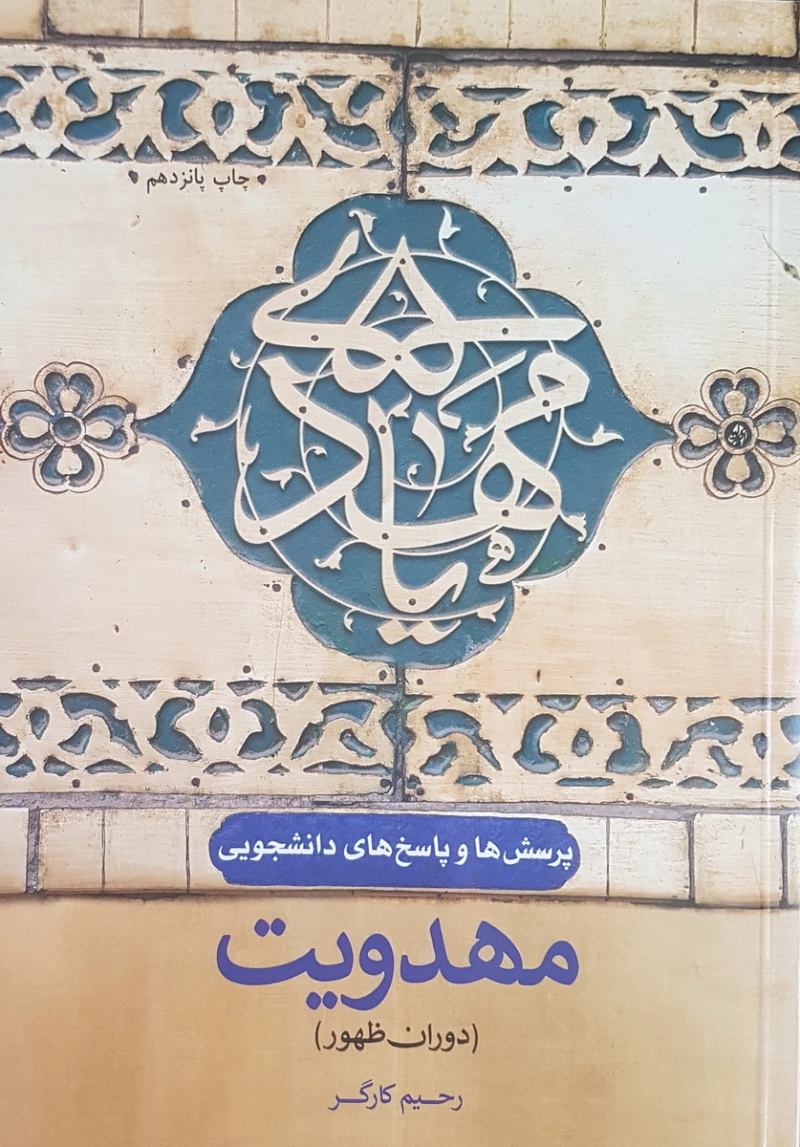 چاپ پانزدهم
یا مهدی
پرسش‌ها و پاسخ‌های دانشجویی
مهدویت
(دوران ظهور)
رحیم کارگر